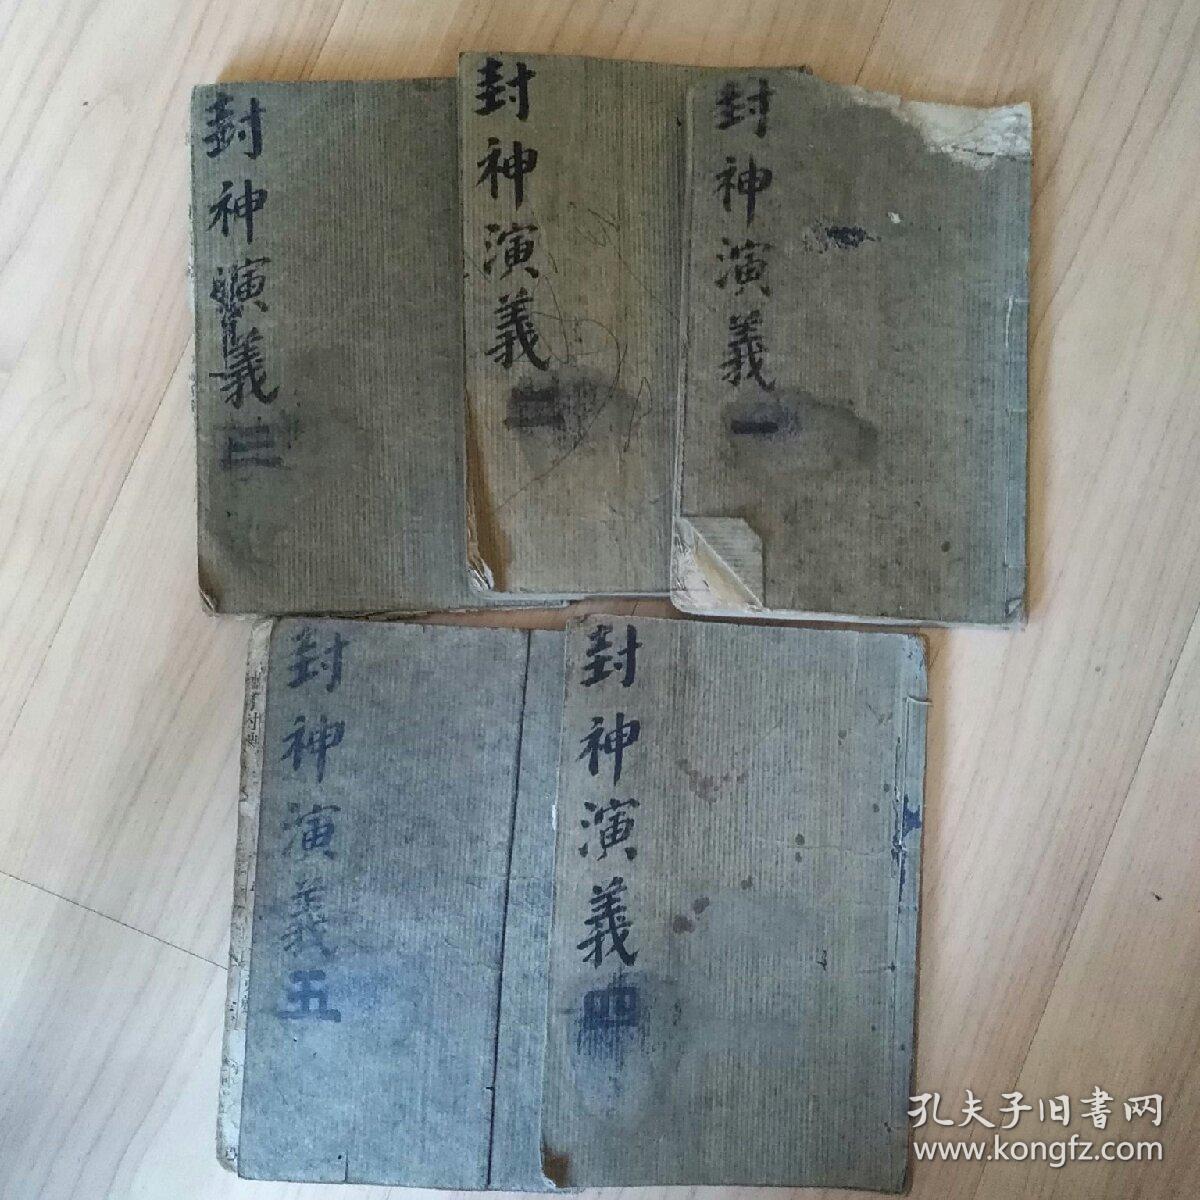 封神演義一
封神演義二
封神演義三
封神演義四
封神演義五
孔夫子旧書网
www.kongfz.com